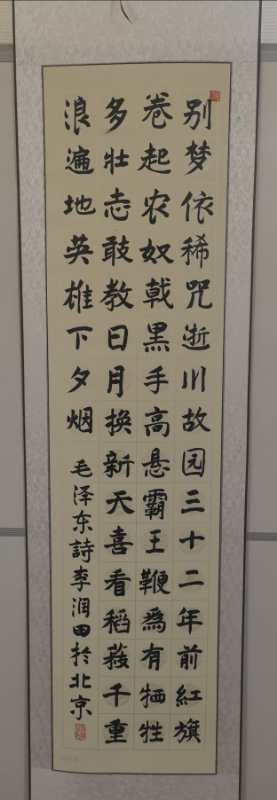 别梦依稀咒逝川故园三十二年前紅旗
卷起农奴戟黑手高悬霸王鞭為有牺牲
多壮志敢教日月换新天喜看稻菽千重
浪遍地英雄下夕烟 毛泽东詩李润田於北京